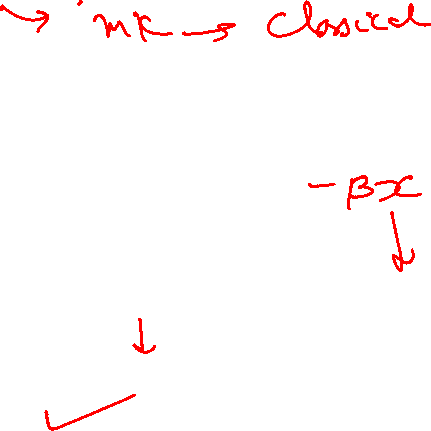 → mK → Classical
- βx